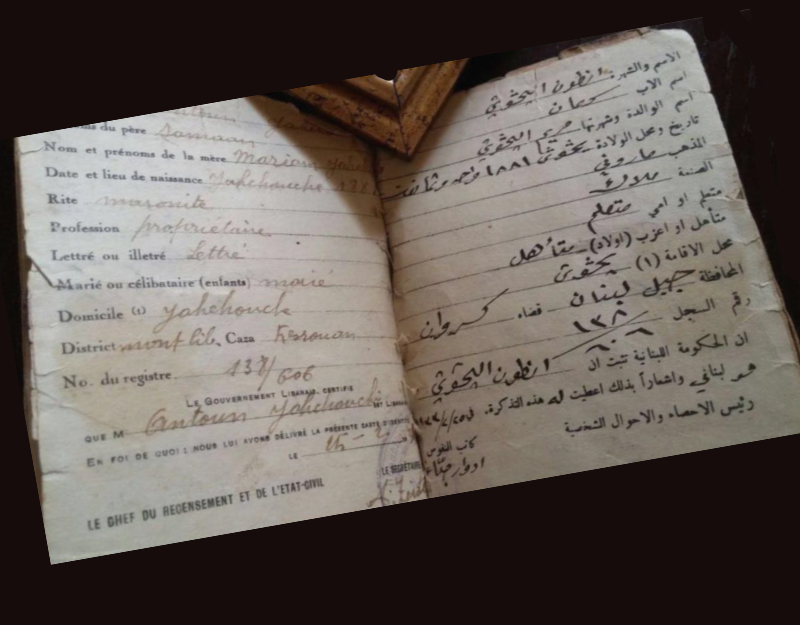 Nom et prénoms de la mère Mariam
Date et lieu de naissance Yahchouche 188
Rite maronite
Profession propriétaire
Lettré ou illetré Lettré
Marié ou célibataire (enfants) marié
Domicile (1) Yahchouch
District mont lib. Caza Kesrouan
No. du registre 138/606
LE GOUVERNEMENT LIBANAIS CERTIFIE
QUE M. Antoun Yahchouchi EST LIBANAIS
EN FOI DE QUOI : NOUS LUI AVONS DÉLIVRÉ LA PRÉSENTE CARTE D'IDENTITÉ
LE 25-
LE SECRÉTAIRE
LE CHEF DU RECENSEMENT ET DE L'ETAT-CIVIL
الاسم والشهرة انطون اليحشوشي
اسم الاب سمعان
اسم الوالدة وشهرتها مريم اليحشوشي
تاريخ ومحل الولادة يحشوش ١٨٨١
المذهب ماروني
الصنعة ملاك
متعلم او امي متعلم
متأهل او اعزب (اولاد) متأهل
محل الاقامة (١) يحشوش
المحافظة جبل لبنان قضاء كسروان
رقم السجل ١٣٨/٦٠٦
ان الحكومة اللبنانية تثبت ان انطون اليحشوشي
هو لبناني واشعاراً بذلك اعطيت له هذه التذكرة.
رئيس الاحصاء والاحوال الشخصية
كاتب النفوس